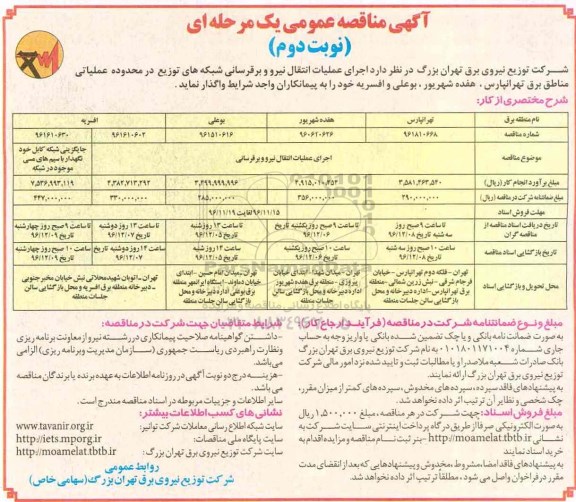 آگهی مناقصه عمومی یک مرحله ای
(نوبت دوم)
شرکت توزیع نیروی برق تهران بزرگ در نظر دارد اجرای عملیات انتقال نیرو و برقرسانی شبکه های توزیع در محدوده عملیاتی
مناطق برق تهرانپارس، هفده شهریور، بوعلی و افسریه خود را به پیمانکاران واجد شرایط واگذار نماید.
شرح مختصری از کار:
نام منطقه برق تهرانپارس هفده شهریور بوعلی افسریه
شماره مناقصه ۹۶۱۸۱۰۶۶۸ ۹۶۰۶۲۰۶۲۶ ۹۶۱۵۱۰۶۱۶ ۹۶۱۶۱۰۶۰۲ ۹۶۱۶۱۰۶۳۰
موضوع مناقصه اجرای عملیات انتقال نیرو و برقرسانی جایگزینی شبکه کابل خود نگهدار با سیم های مسی موجود در شبکه
مبلغ برآورد انجام کار (ریال) ۳,۵۸۱,۴۶۳,۵۴۰ ۴,۹۱۵,۰۱۰,۴۵۲ ۳,۴۹۹,۹۹۹,۹۹۶ ۴,۳۸۲,۷۱۳,۲۹۲ ۷,۵۳۶,۹۹۳,۱۱۹
مبلغ ضمانتنامه شرکت در مناقصه (ریال) ۲۹۰,۰۰۰,۰۰۰ ۳۵۶,۰۰۰,۰۰۰ ۲۸۵,۰۰۰,۰۰۰ ۳۳۰,۰۰۰,۰۰۰ ۴۴۷,۰۰۰,۰۰۰
مهلت فروش اسناد ۹۶/۱۱/۱۵ لغایت ۹۶/۱۱/۱۹
تاریخ دریافت اسناد مناقصه از مناقصه گران تا ساعت ۹ صبح روز سه شنبه تاریخ ۹۶/۱۲/۰۸ تا ساعت ۹ صبح روز یکشنبه تاریخ ۹۶/۱۲/۰۶ تا ساعت ۱۳ روز شنبه تاریخ ۹۶/۱۲/۰۵ تا ساعت ۱۳ روز دوشنبه تاریخ ۹۶/۱۲/۰۷ تا ساعت ۹ صبح روز چهارشنبه تاریخ ۹۶/۱۲/۰۹
تاریخ بازگشایی اسناد مناقصه ساعت ۱۰ صبح روز سه شنبه تاریخ ۹۶/۱۲/۰۸ ساعت ۱۰ صبح روز یکشنبه تاریخ ۹۶/۱۲/۰۶ ساعت ۱۴ روز شنبه تاریخ ۹۶/۱۲/۰۵ ساعت ۱۴ روز دوشنبه تاریخ ۹۶/۱۲/۰۷ ساعت ۱۰ صبح روز چهارشنبه تاریخ ۹۶/۱۲/۰۹
محل تحویل و بازگشایی اسناد تهران - فلکه دوم تهرانپارس - خیابان فرجام شرقی - نبش زرین شمالی - منطقه برق تهرانپارس - اداره دبیرخانه و محل بازگشایی سالن جلسات منطقه تهران - میدان شهدا - ابتدای خیابان پیروزی - منطقه برق هفده شهریور اداره دبیرخانه و محل بازگشایی سالن جلسات منطقه تهران - میدان امام حسین - ابتدای خیابان دماوند - ایستگاه منطقه برق بوعلی اداره دبیرخانه و محل بازگشایی سالن جلسات منطقه تهران - اتوبان شهید محلاتی نبش خیابان مخبر جنوبی - دبیرخانه منطقه برق افسریه و محل بازگشایی سالن جلسات منطقه
مبلغ و نوع ضمانتنامه شرکت در مناقصه (فرآیند ارجاع کار):
به صورت ضمانت نامه بانکی و یا چک تضمین شده بانکی یا واریز وجه به حساب
جاری شماره ۰۱۰۱۸۰۱۱۷۱۰۰۴ به نام شرکت توزیع نیروی برق تهران بزرگ
بانک صادرات شعبه ملاصدرا و یا مطالبات ثبت و تایید شده نزد امور مالی شرکت
توزیع نیروی برق تهران بزرگ ارائه نمایند.
به پیشنهادهای فاقد سپرده، سپرده های مخدوش، سپرده های کمتر از میزان مقرر،
چک شخصی و نظایر آن ترتیب اثر داده نخواهد شد.
مبلغ فروش اسناد: جهت شرکت در هر مناقصه، مبلغ ۱,۵۰۰,۰۰۰ ریال
به صورت الکترونیکی صرفا از طریق درگاه پرداخت اینترنتی سایت شرکت به
نشانی http://moamelat.tbtb.ir - بنر ثبت نام مناقصه و مزایده اقدام به
خرید اسناد نمایند
به پیشنهادهای فاقد امضا، مشروط، مخدوش و پیشنهادهایی که بعد از انقضای مدت
مقرر در فراخوان واصل می شود، مطلقا ترتیب اثر داده نخواهد شد.
شرایط متقاضیان جهت شرکت در مناقصه:
-داشتن گواهینامه صلاحیت پیمانکاری در رشته نیرو از معاونت برنامه ریزی
و نظارت راهبردی ریاست جمهوری (سازمان مدیریت و برنامه ریزی) الزامی
می باشد.
-هزینه درج دو نوبت آگهی در روزنامه اطلاعات به عهده برنده یا برندگان مناقصه
می باشد.
سایر اطلاعات و جزییات مربوطه در اسناد مناقصه مندرج است.
نشانی های کسب اطلاعات بیشتر:
سایت شبکه اطلاع رسانی معاملات شرکت توانیر: www.tavanir.org.ir
سایت پایگاه ملی مناقصات: http://iets.mporg.ir
سایت شرکت توزیع نیروی برق تهران بزرگ: http://moamelat.tbtb.ir
روابط عمومی
شرکت توزیع نیروی برق تهران بزرگ (سهامی خاص)